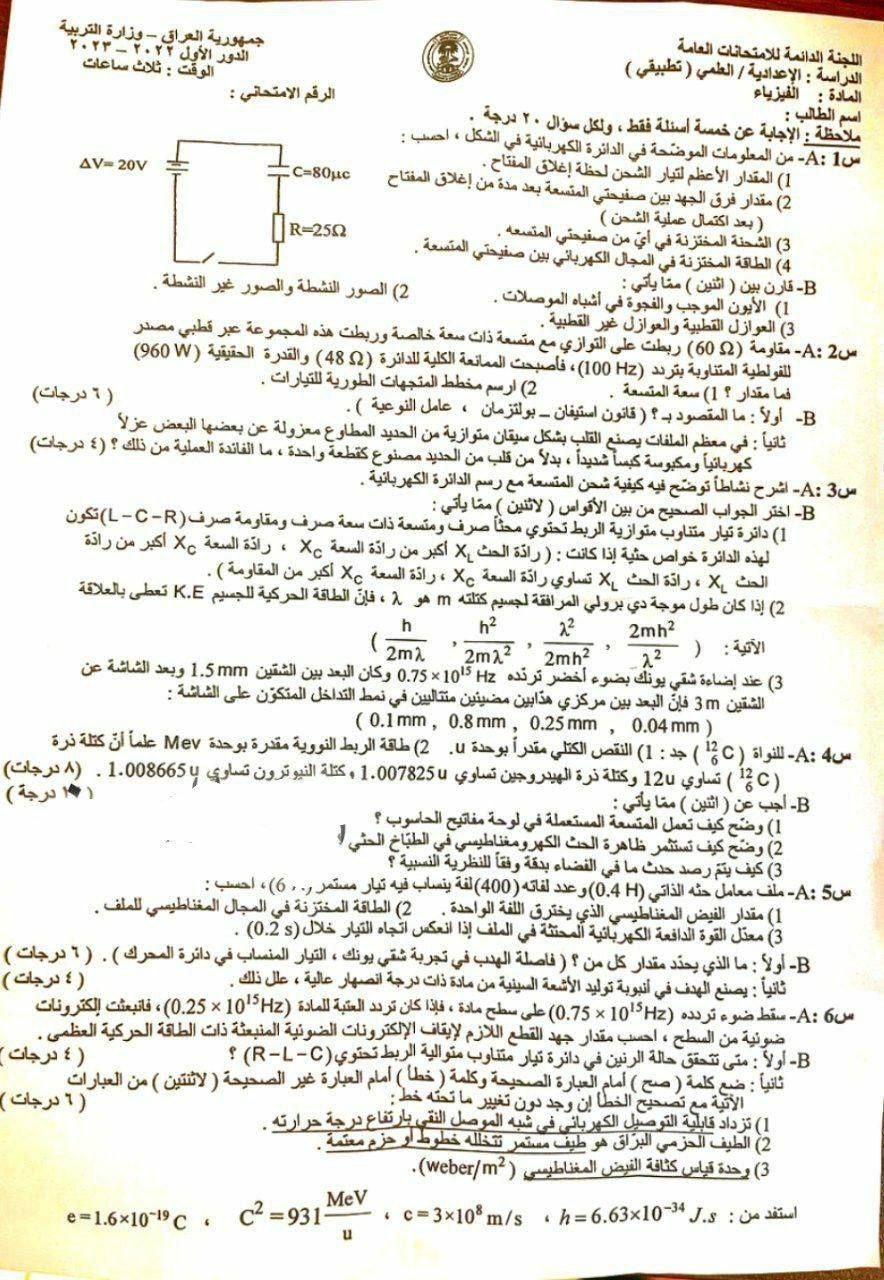 جمهورية العراق – وزارة التربية
الدور الأول ٢٠٢٢ – ٢٠٢٣
الوقت : ثلاث ساعات
الرقم الامتحاني :
اللجنة الدائمة للامتحانات العامة
الدراسة : الإعدادية / العلمي ( تطبيقي )
المادة : الفيزياء
اسم الطالب :
ملاحظة : الإجابة عن خمسة أسئلة فقط ، ولكل سؤال ٢٠ درجة .
س1 :A- من المعلومات الموضّحة في الدائرة الكهربائية في الشكل ، احسب :
1) المقدار الأعظم لتيار الشحن لحظة إغلاق المفتاح .
2) مقدار فرق الجهد بين صفيحتي المتسعة بعد مدة من إغلاق المفتاح
( بعد اكتمال عملية الشحن )
3) الشحنة المختزنة في أيّ من صفيحتي المتسعه .
4) الطاقة المختزنة في المجال الكهربائي بين صفيحتي المتسعة .
ΔV= 20V
C=80μc
R=25Ω
B- قارن بين ( اثنين ) ممّا يأتي :
1) الأيون الموجب والفجوة في أشباه الموصلات . 2) الصور النشطة والصور غير النشطة .
3) العوازل القطبية والعوازل غير القطبية .
س2 :A- مقاومة (60 Ω) ربطت على التوازي مع متسعة ذات سعة خالصة وربطت هذه المجموعة عبر قطبي مصدر
للفولطية المتناوبة بتردد (100 Hz)، فأصبحت الممانعة الكلية للدائرة (48 Ω) والقدرة الحقيقية (960 W)
فما مقدار ؟ 1) سعة المتسعة . 2) ارسم مخطط المتجهات الطورية للتيارات .
B- أولاً : ما المقصود بـ ؟ ( قانون استيفان – بولتزمان ، عامل النوعية ) . ( ٦ درجات)
ثانياً : في معظم الملفات يصنع القلب بشكل سيقان متوازية من الحديد المطاوع معزولة عن بعضها البعض عزلاً
كهربائياً ومكبوسة كبساً شديداً ، بدلاً من قلب من الحديد مصنوع كقطعة واحدة ، ما الفائدة العملية من ذلك ؟ (٤ درجات)
س3 :A- اشرح نشاطاً توضّح فيه كيفية شحن المتسعة مع رسم الدائرة الكهربائية .
B- اختر الجواب الصحيح من بين الأقواس ( لاثنين ) ممّا يأتي :
1) دائرة تيار متناوب متوازية الربط تحتوي محثّاً صرف ومتسعة ذات سعة صرف ومقاومة صرف (L – C – R) تكون
لهذه الدائرة خواص حثية إذا كانت : ( رادّة الحث X_L أكبر من رادّة السعة X_C ، رادّة السعة X_C أكبر من رادّة
الحث X_L ، رادّة الحث X_L تساوي رادّة السعة X_C ، رادّة السعة X_C أكبر من المقاومة ) .
2) إذا كان طول موجة دي برولي المرافقة لجسيم كتلته m هو λ ، فإنّ الطاقة الحركية للجسيم K.E تعطى بالعلاقة
الآتية : ( 2mh²/λ² ، λ²/2mh² ، h²/2mλ² ، h/2mλ )
3) عند إضاءة شقي يونك بضوء أخضر تردّده 0.75 ×10¹⁵ Hz وكان البعد بين الشقين 1.5 mm وبعد الشاشة عن
الشقين 3 m فإنّ البعد بين مركزي هدّابين مضيئين متتاليين في نمط التداخل المتكوّن على الشاشة :
( 0.1 mm , 0.8 mm , 0.25 mm , 0.04 mm )
س4 :A- للنواة ( ¹²₆C ) جد : 1) النقص الكتلي مقدراً بوحدة u. 2) طاقة الربط النووية مقدرة بوحدة Mev علماً أنّ كتلة ذرة
( ¹²₆C ) تساوي 12u وكتلة ذرة الهيدروجين تساوي 1.007825 u وكتلة النيوترون تساوي 1.008665 u . (٨ درجات)
B- أجب عن ( اثنين ) ممّا يأتي : ( درجة )
1) وضّح كيف تعمل المتسعة المستعملة في لوحة مفاتيح الحاسوب ؟
2) وضّح كيف تستثمر ظاهرة الحث الكهرومغناطيسي في الطبّاخ الحثي
3) كيف يتمّ رصد حدث ما في الفضاء بدقة وفقاً للنظرية النسبية ؟
س5 :A- ملف معامل حثه الذاتي (0.4 H) وعدد لفاته (400) لفة ينساب فيه تيار مستمر ، احسب :
1) مقدار الفيض المغناطيسي الذي يخترق اللفة الواحدة . 2) الطاقة المختزنة في المجال المغناطيسي للملف .
3) معدّل القوة الدافعة الكهربائية المحتثة في الملف إذا انعكس اتجاه التيار خلال (0.2 s) .
B- أولاً : ما الذي يحدّد مقدار كل من ؟ ( فاصلة الهدب في تجربة شقي يونك ، التيار المنساب في دائرة المحرك ) . ( ٦ درجات )
ثانياً : يصنع الهدف في أنبوبة توليد الأشعة السينية من مادة ذات درجة انصهار عالية ، علل ذلك . ( ٤ درجات )
س6 :A- سقط ضوء تردده (0.75 × 10¹⁵Hz) على سطح مادة ، فإذا كان تردد العتبة للمادة (0.25 × 10¹⁵Hz)، فانبعثت إلكترونات
ضوئية من السطح ، احسب مقدار جهد القطع اللازم لإيقاف الإلكترونات الضوئية المنبعثة ذات الطاقة الحركية العظمى .
B- أولاً : متى تتحقق حالة الرنين في دائرة تيار متناوب متوالية الربط تحتوي (R – L – C) ؟ ( ٤ درجات )
ثانياً : ضع كلمة ( صح ) أمام العبارة الصحيحة وكلمة ( خطأ ) أمام العبارة غير الصحيحة ( لاثنتين ) من العبارات
الآتية مع تصحيح الخطأ إن وجد دون تغيير ما تحته خط : ( ٦ درجات )
1) تزداد قابلية التوصيل الكهربائي في شبه الموصل النقي بارتفاع درجة حرارته .
2) الطيف الحزمي البرّاق هو طيف مستمر تتخلله خطوط أو حزم معتمة .
3) وحدة قياس كثافة الفيض المغناطيسي (weber/m²).
استفد من : h = 6.63×10⁻³⁴ J.s ، c = 3×10⁸ m/s ، C² = 931 MeV/u ، e = 1.6×10⁻¹⁹ C